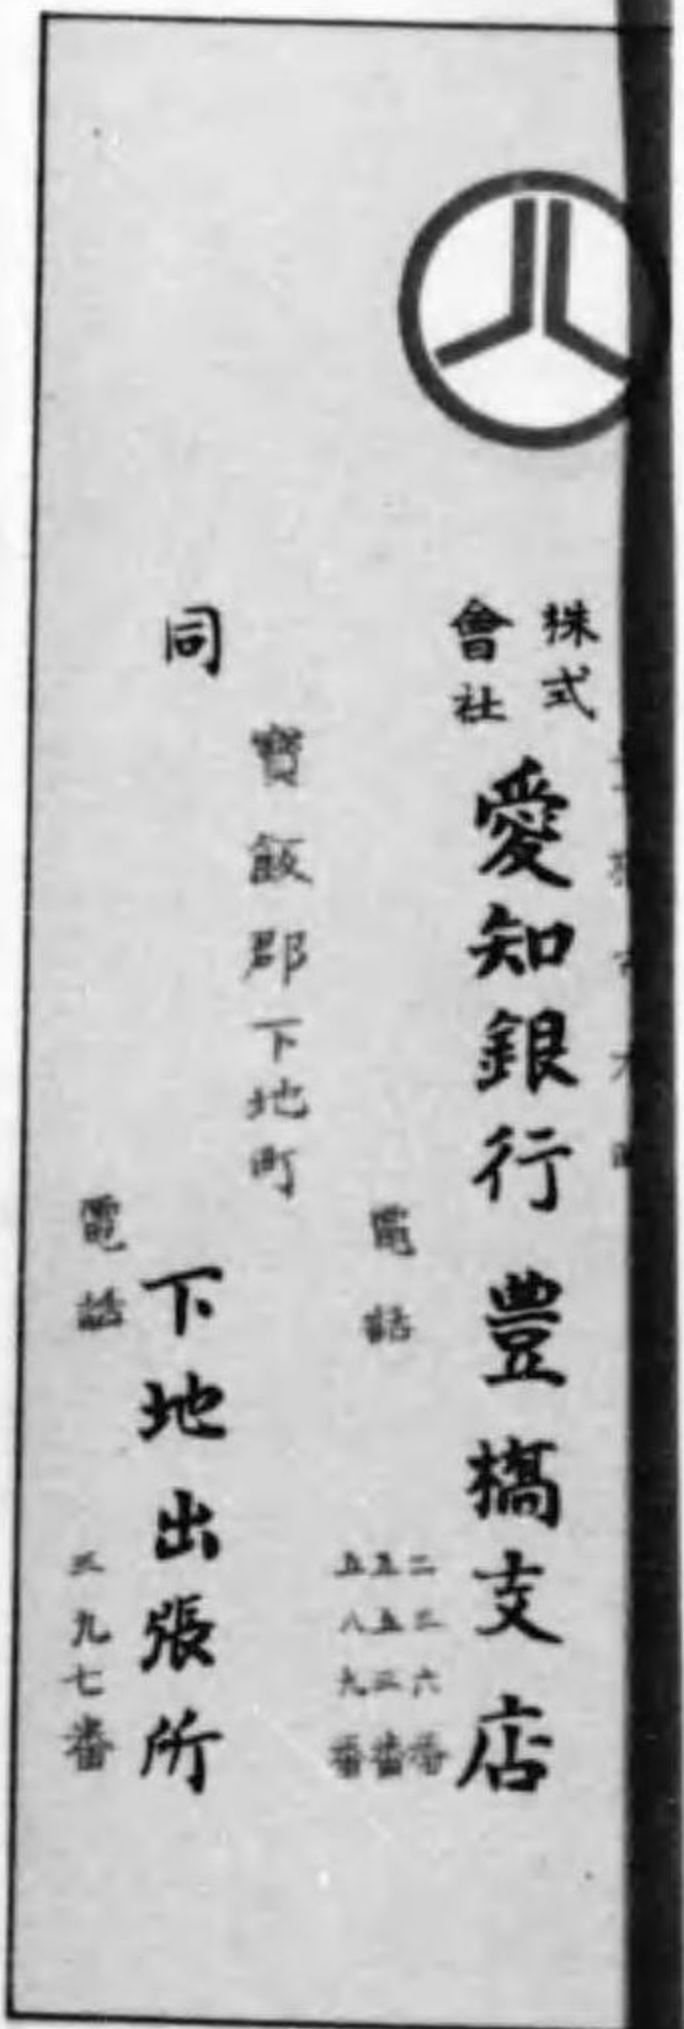 株式會社 愛知銀行豊橋支店
電話
二三六番
五五三番
五八九番
寶飯郡下地町
同 下地出張所
電話 三九七番